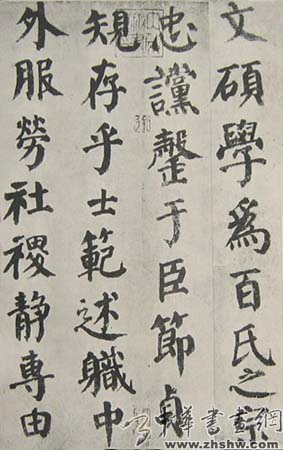 文碩學爲百氏之宗
忠讜罄于臣節貞
䂓存乎士範述軄中
外服勞社稷静專由
華書畫網
www.zhshw.com